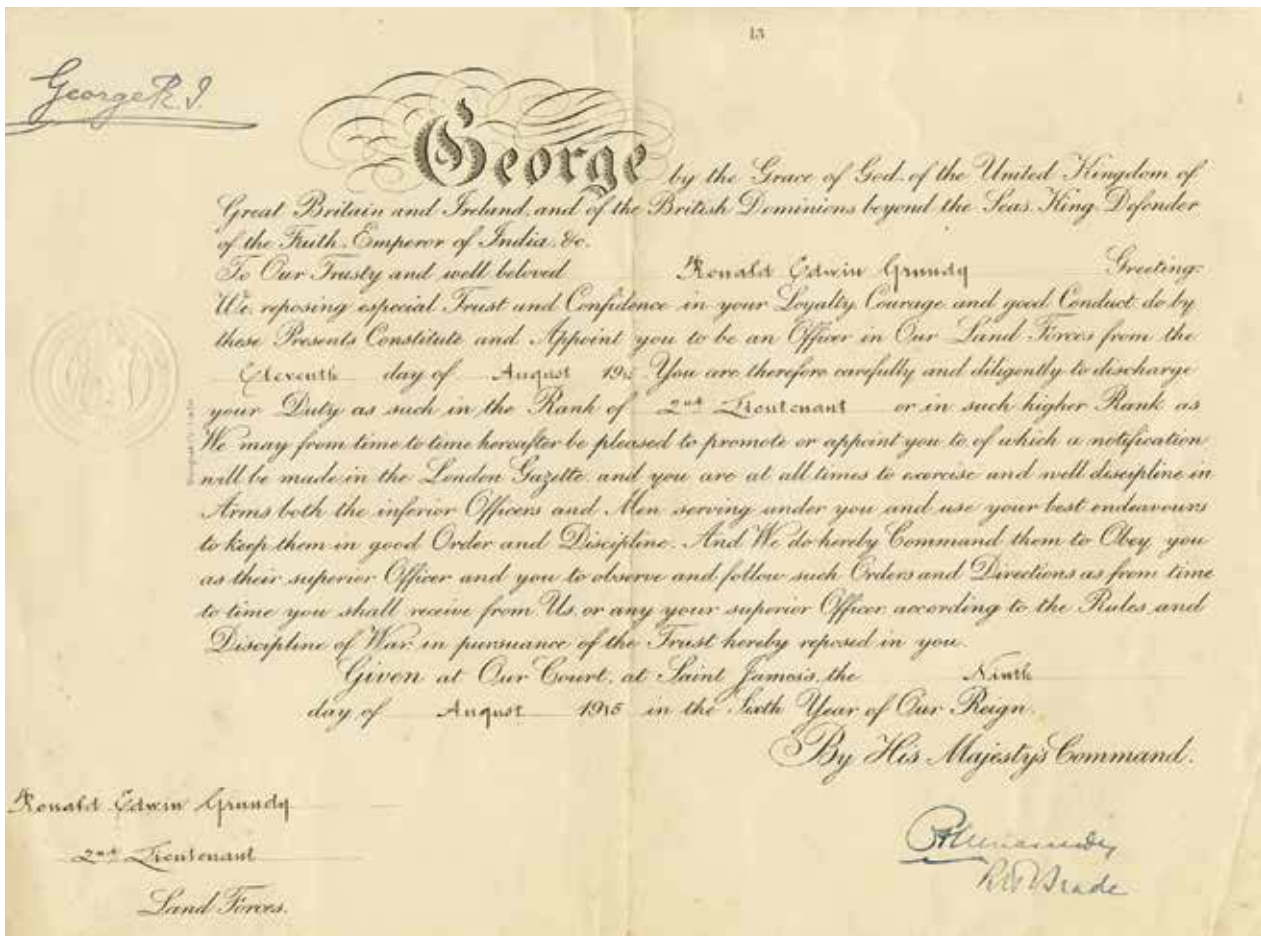 13
George R.I.
George by the Grace of God, of the United Kingdom of
Great Britain and Ireland, and of the British Dominions beyond the Seas, King, Defender
of the Faith, Emperor of India, &c.
To Our Trusty and well beloved Ronald Edwin Grundy Greeting:
We, reposing especial Trust and Confidence in your Loyalty, Courage, and good Conduct, do by
these Presents Constitute and Appoint you to be an Officer in Our Land Forces from the
Eleventh day of August 1915 You are therefore carefully and diligently to discharge
your Duty as such in the Rank of 2nd Lieutenant or in such higher Rank as
We may from time to time hereafter be pleased to promote or appoint you to, of which a notification
will be made in the London Gazette, and you are at all times to exercise and well discipline in
Arms both the inferior Officers and Men serving under you and use your best endeavours
to keep them in good Order and Discipline. And We do hereby Command them to Obey you
as their superior Officer and you to observe and follow such Orders and Directions as from time
to time you shall receive from Us, or any your superior Officer, according to the Rules and
Discipline of War, in pursuance of the Trust hereby reposed in you.
Given at Our Court, at Saint James's, the Ninth
day of August 1915 in the Sixth Year of Our Reign.
By His Majesty's Command.
Ronald Edwin Grundy
2nd Lieutenant
Land Forces.
Brade